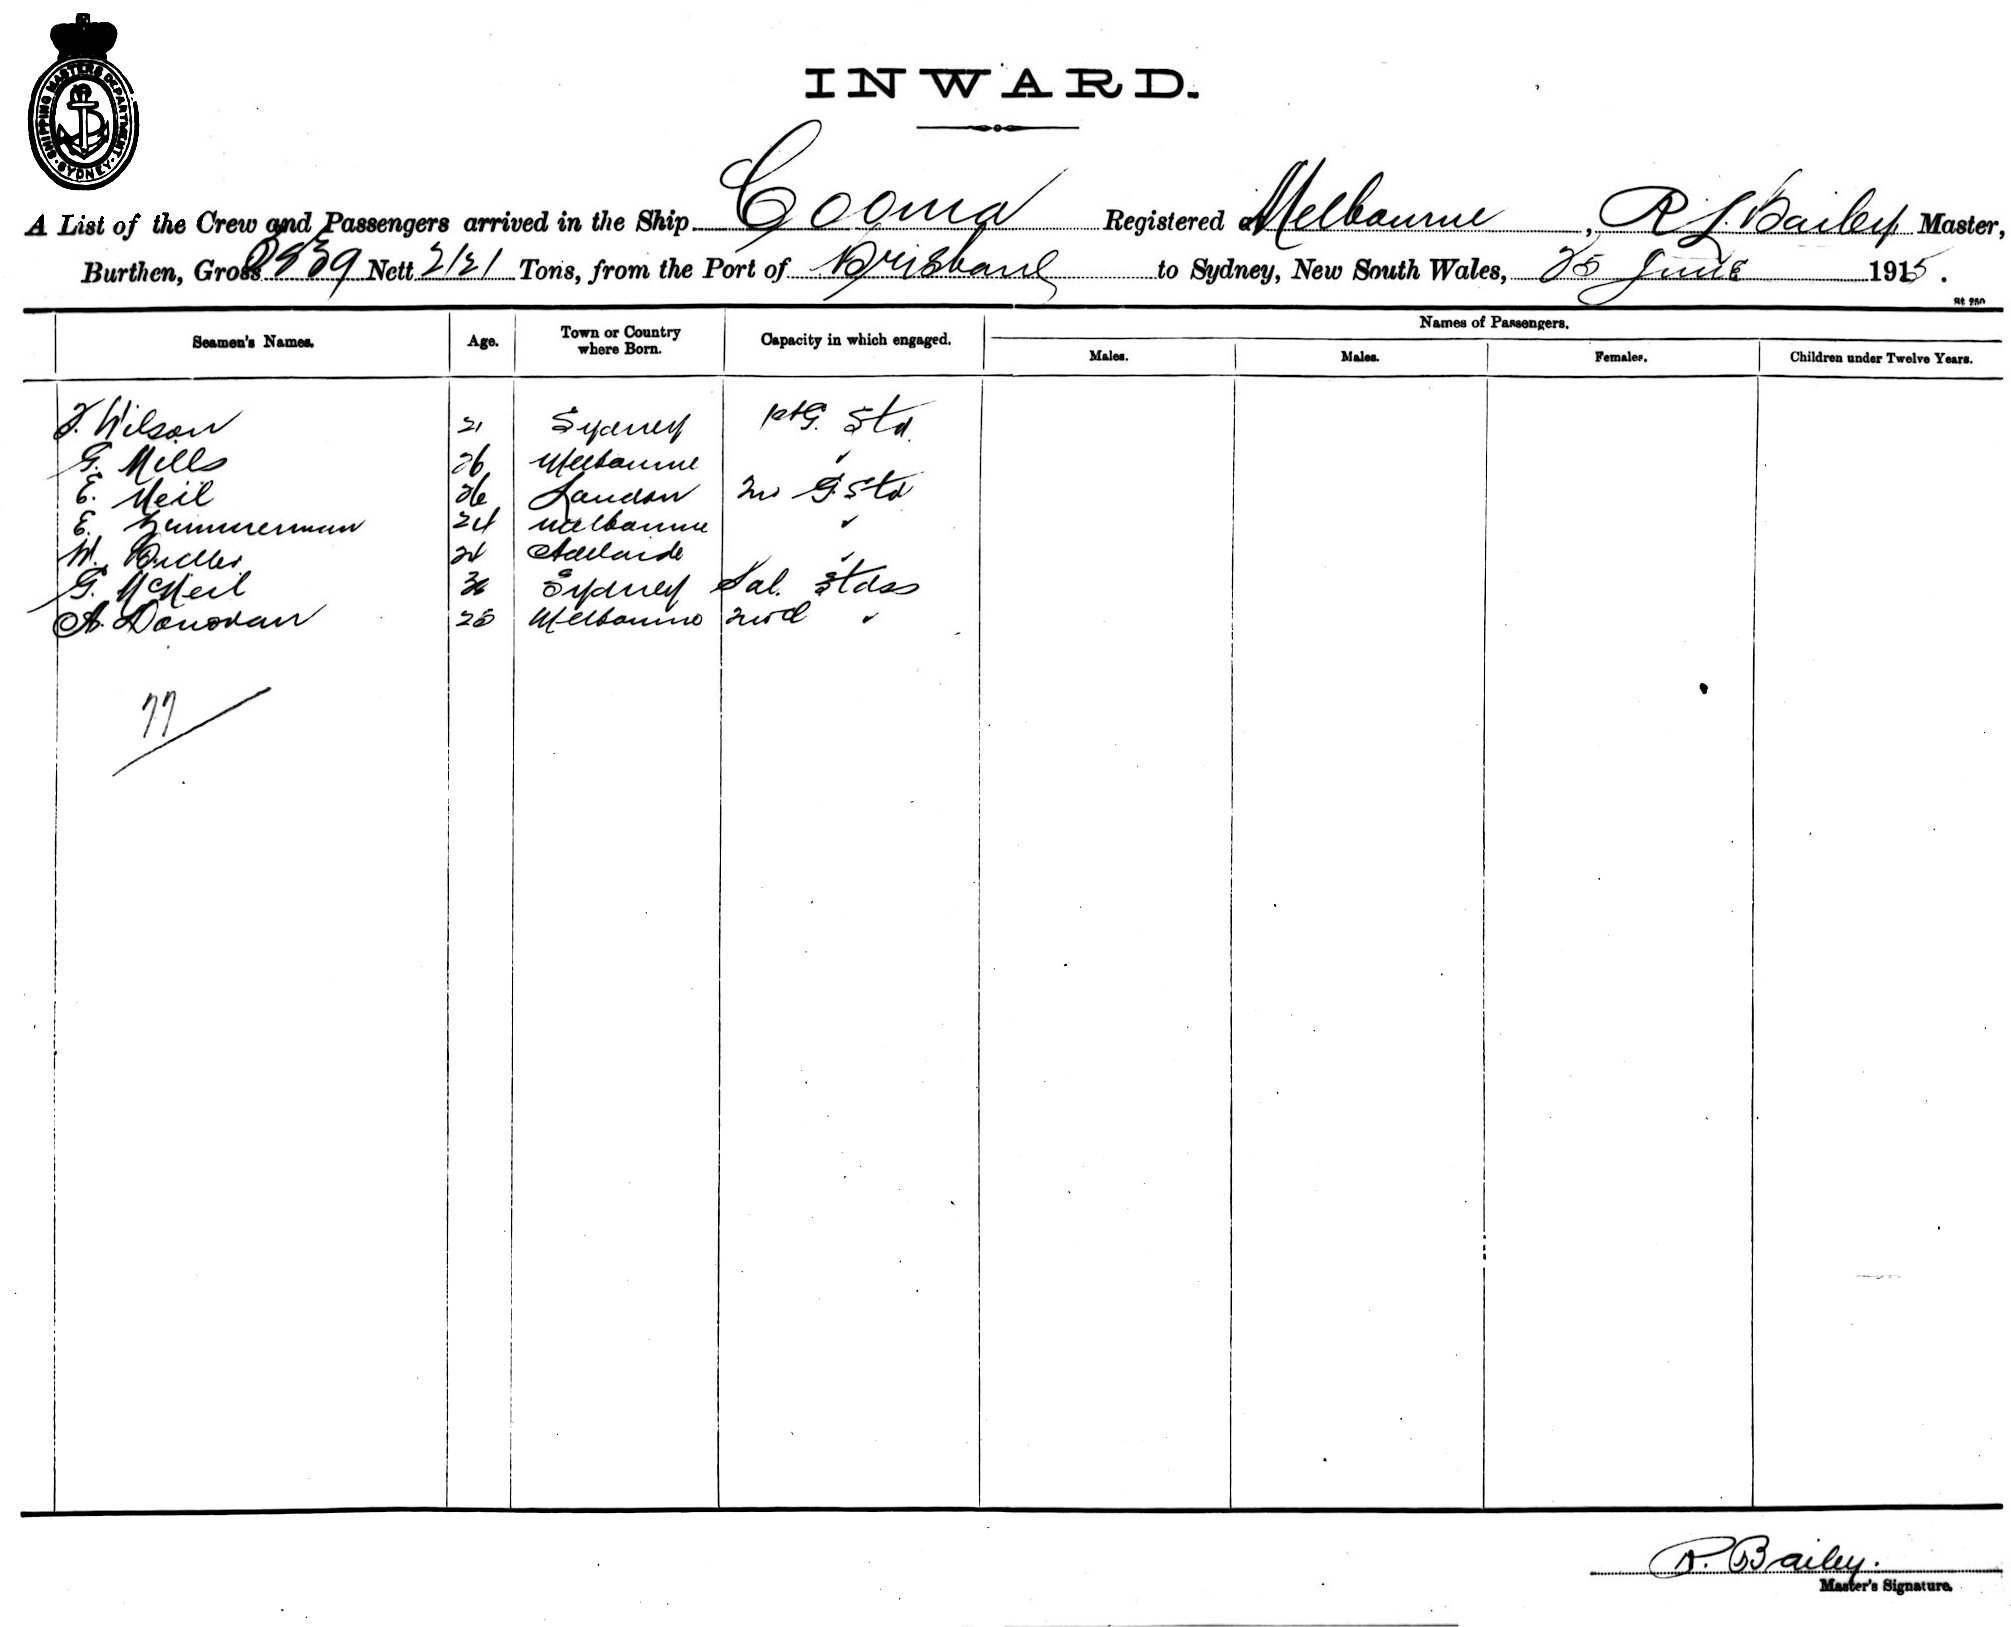 SHIPPING MASTERS DEPARTMENT. SYDNEY
INWARD.
A List of the Crew and Passengers arrived in the Ship Cooma Registered at Melbourne, R L Bailey Master,
Burthen, Gross 3839 Nett 2121 Tons, from the Port of Brisbane to Sydney, New South Wales, 25 June 1915.
Names of Passengers.
Seamen's Names. Age. Town or Country where Born. Capacity in which engaged. Males. Males. Females. Children under Twelve Years.
Wilson 21 Sydney 1st G. Std
G. Mills 26 Melbourne "
E. Neil 26 London 2nd G. Std
E. Zimmerman 24 Melbourne "
W. 24 Adelaide "
G. McNeil Sydney Sal. Stdss
A. Donovan 25 Melbourne 2nd "
77
R. Bailey.
Master's Signature.